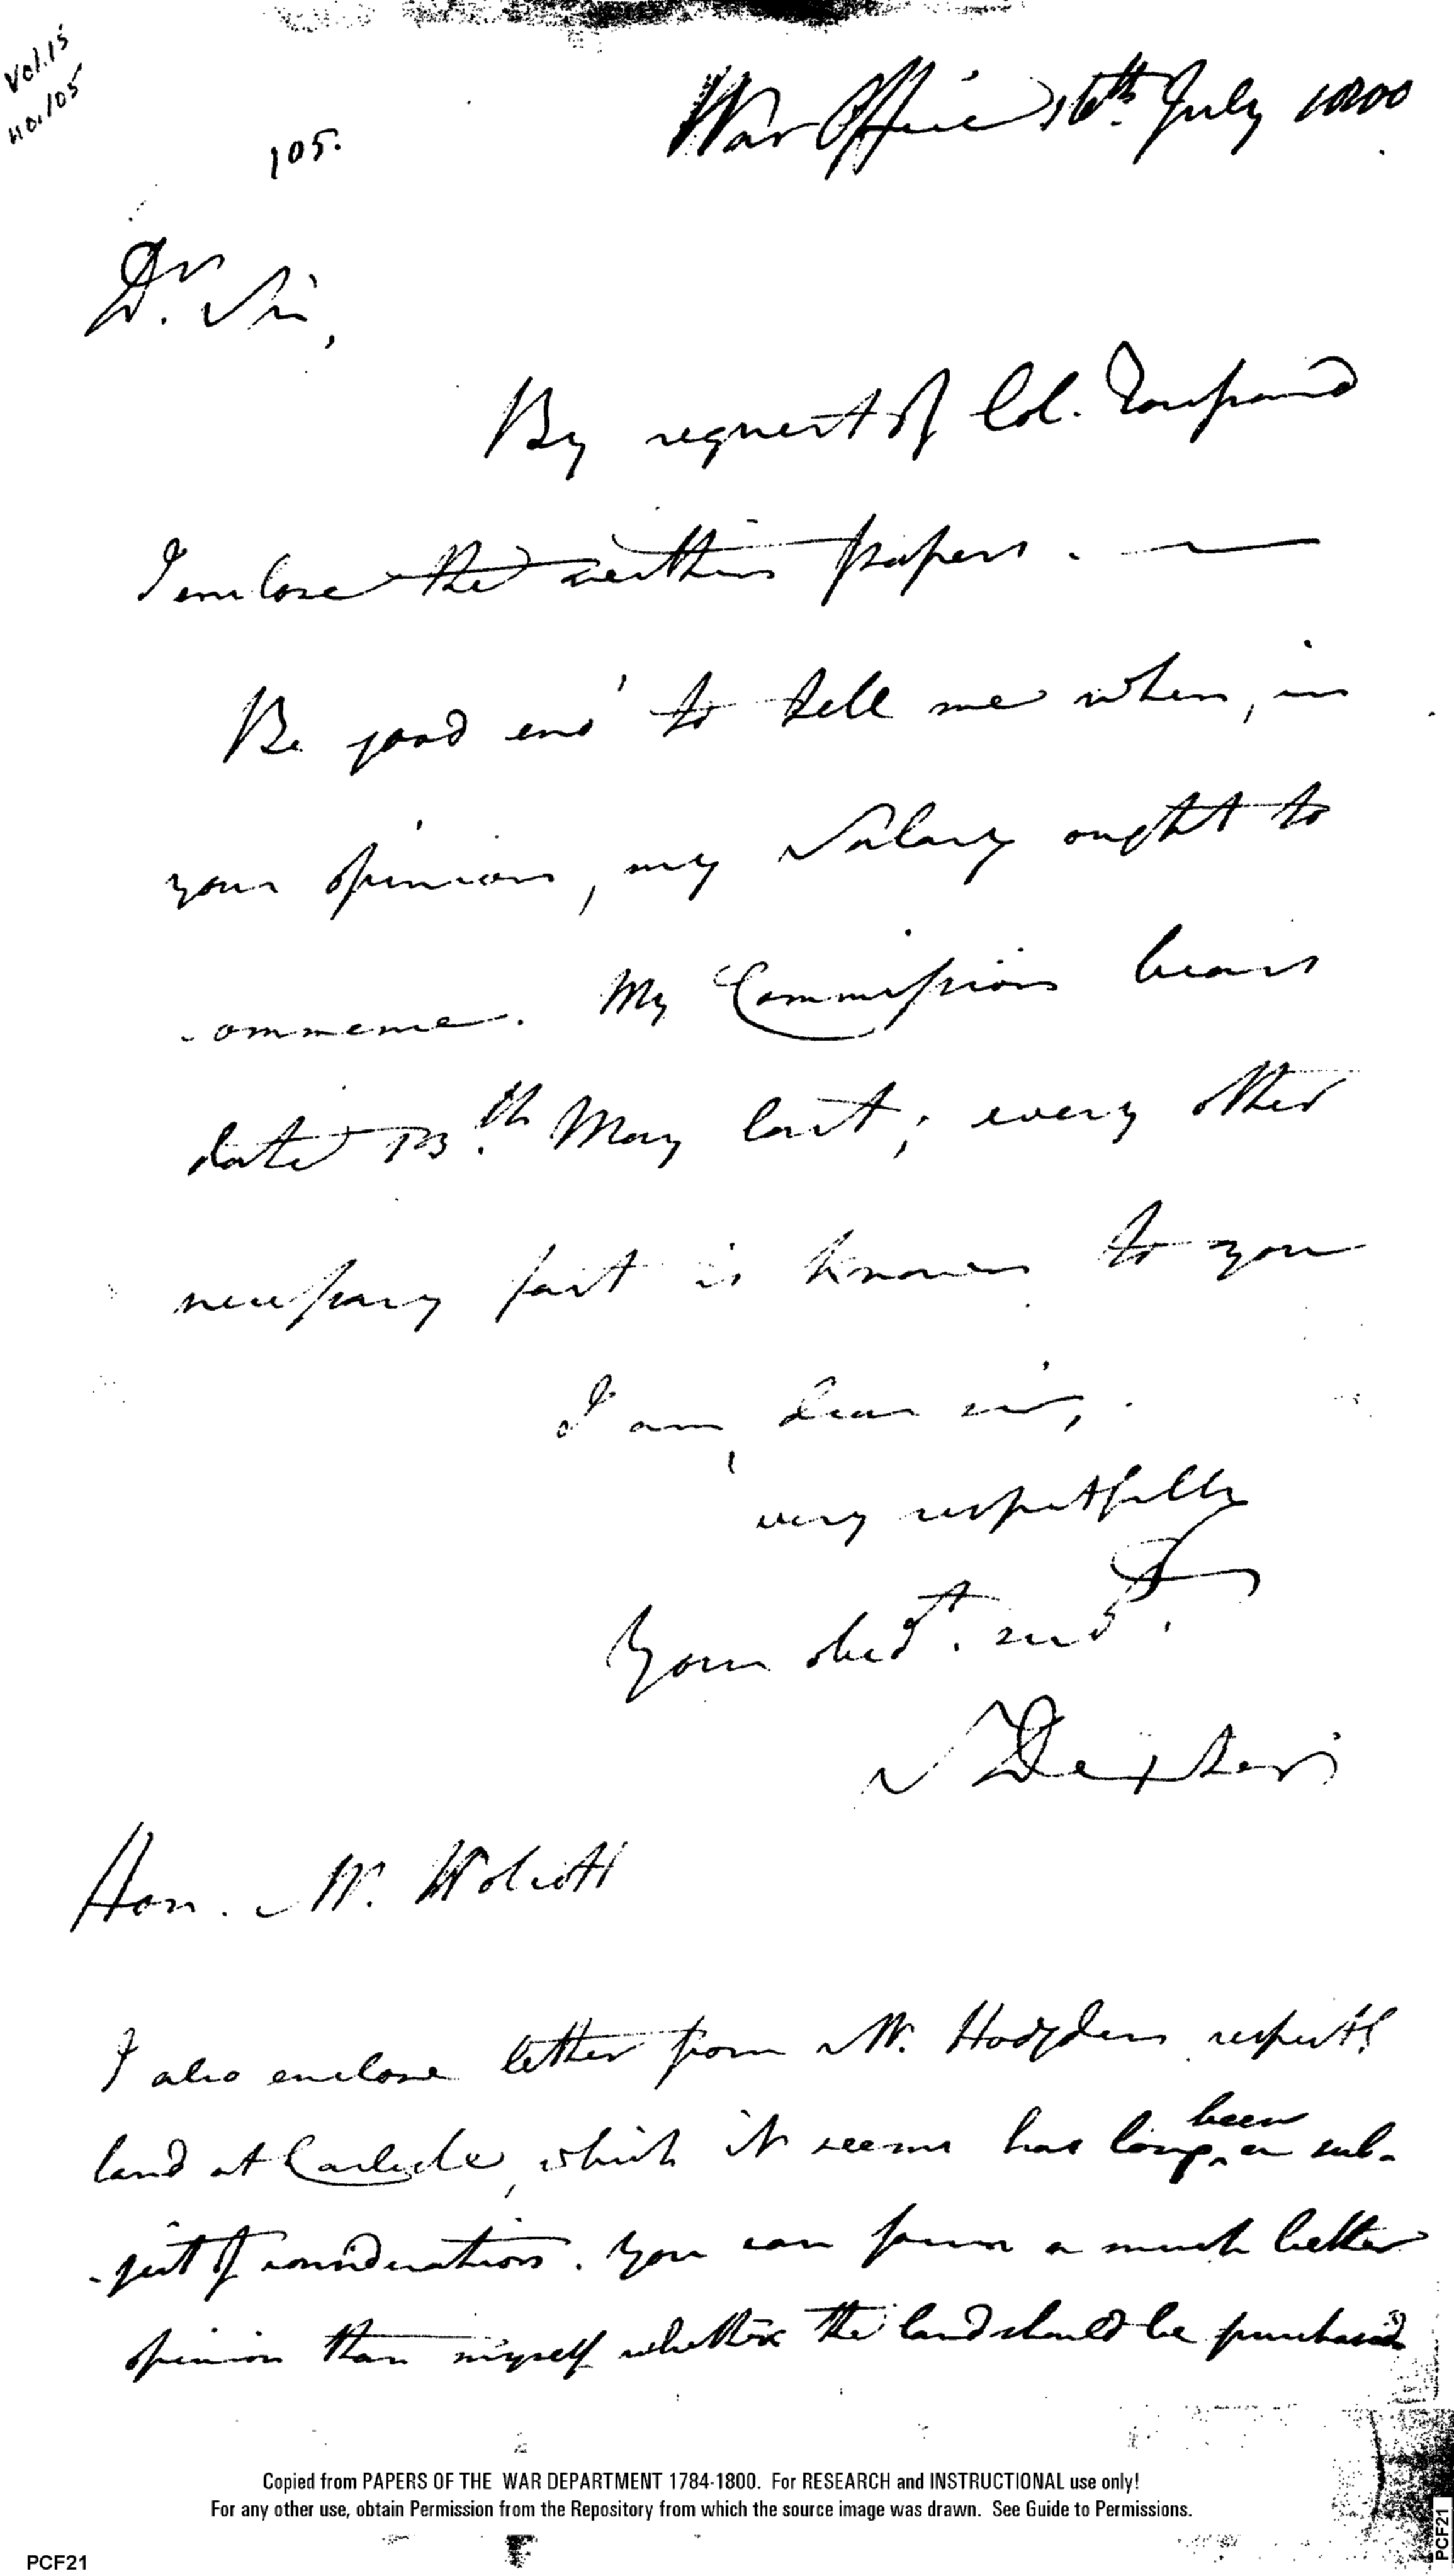 Vol. 15
no. 105
105.
War Office 16th July 1800
Dr. Sir,
By request of Col. Tousard
I enclose the within papers. —
Be good eno' to tell me when, in
your opinion, my Salary ought to
commence. My Commission bears
date 13.th May last; every other
necessary fact is known to you
I am, dear sir,
very respectfully
Your obedt. servt.
S Dexter
Hon. Mr. Wolcott
I also enclose letter from Mr. Hodgden respectg
land at Carlisle, which it seems has long been a sub-
-ject of consideration. You can form a much better
opinion than myself whether the land should be purchased
Copied from PAPERS OF THE WAR DEPARTMENT 1784-1800. For RESEARCH and INSTRUCTIONAL use only!
For any other use, obtain Permission from the Repository from which the source image was drawn. See Guide to Permissions.
PCF21
PCF21